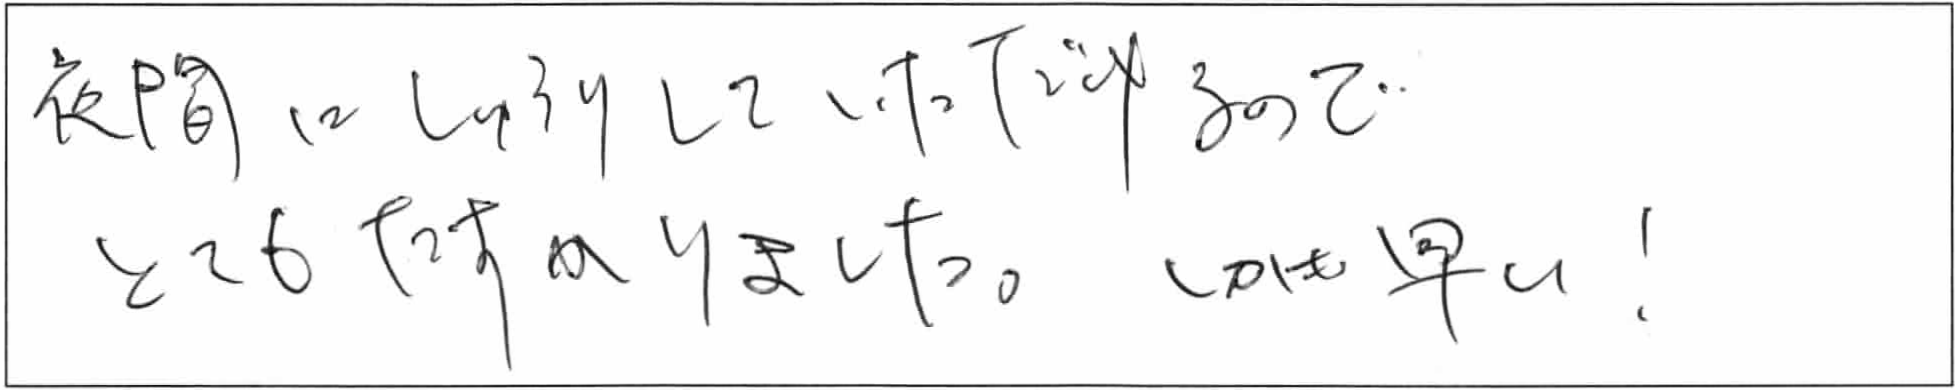 夜間にしゅうりしていただけるので
とてもたすかりました。しかも早い!